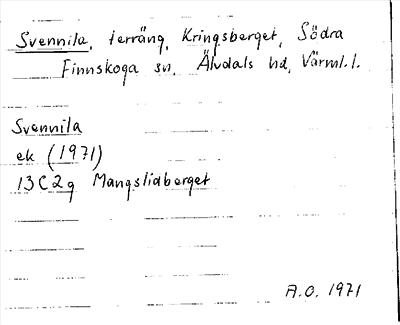 Svennila, terräng, Kringsberget, Södra
Finnskoga sn, Älvdals hd, Värml.l.
Svennila
ek (1971)
13C2g Mangsliaberget
A.O. 1971